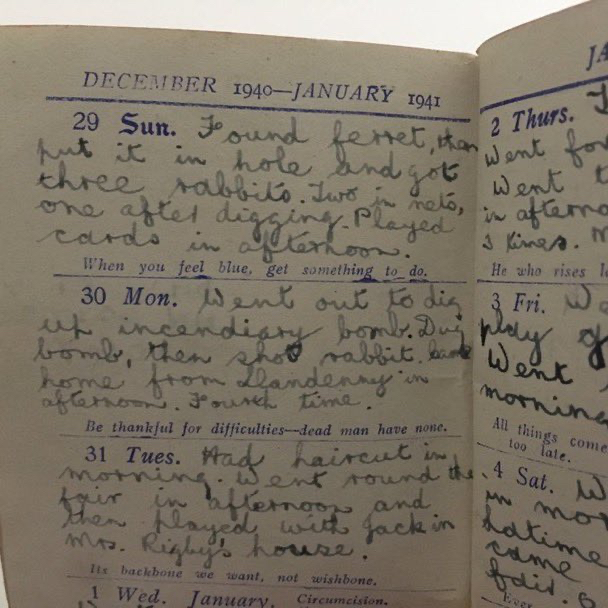 DECEMBER 1940—JANUARY 1941
29 Sun. Found ferret, then
put it in hole and got
three rabbits. Two in nets,
one after digging. Played
cards in afternoon.
When you feel blue, get something to do.
30 Mon. Went out to dig
up incendiary bomb. Dug
bomb, then shot rabbit. Came
home from Llandenny in
afternoon. Fourth time.
Be thankful for difficulties—dead man have none.
31 Tues. Had haircut in
morning. Went round the
fair in afternoon and
then played with Jack in
Mrs. Rigby's house.
Its backbone we want, not wishbone.
1 Wed. January. Circumcision.
JA
2 Thurs.
Went
Went
in
3 times.
He who rises
3 Fri.
play
Went
morning
All things come
too late.
4 Sat.
in
came